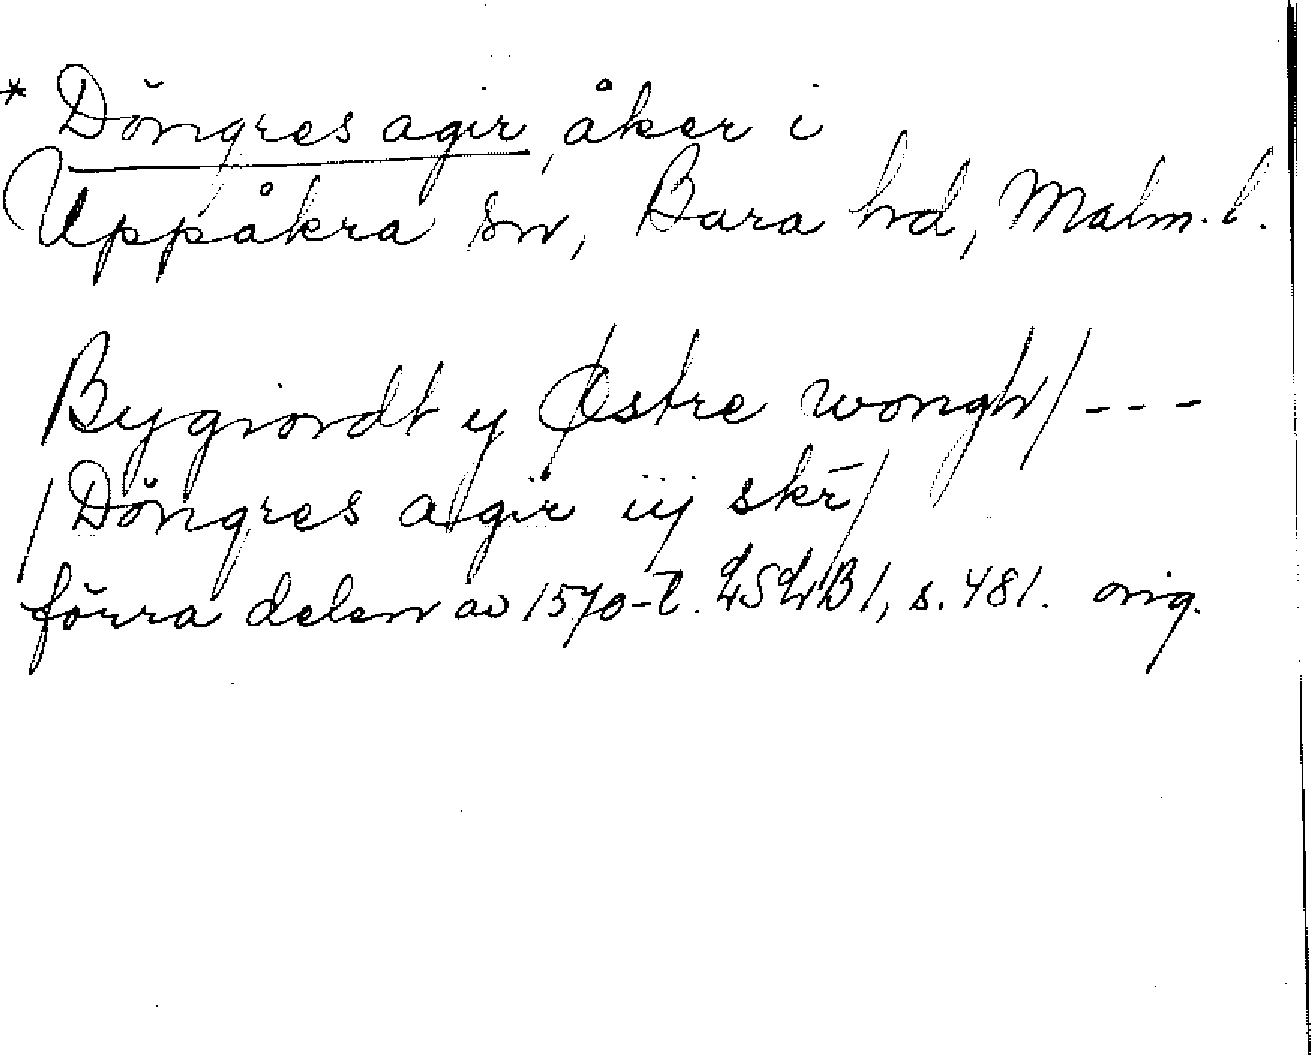 * Döngres agir, åker i
Uppåkra sn, Bara hd, Malm. l.
Bygiordt y Østre wongh / ---
/ Döngres agir iij skr /
förra delen av 1570-t. LSLB 1, s. 481. orig.